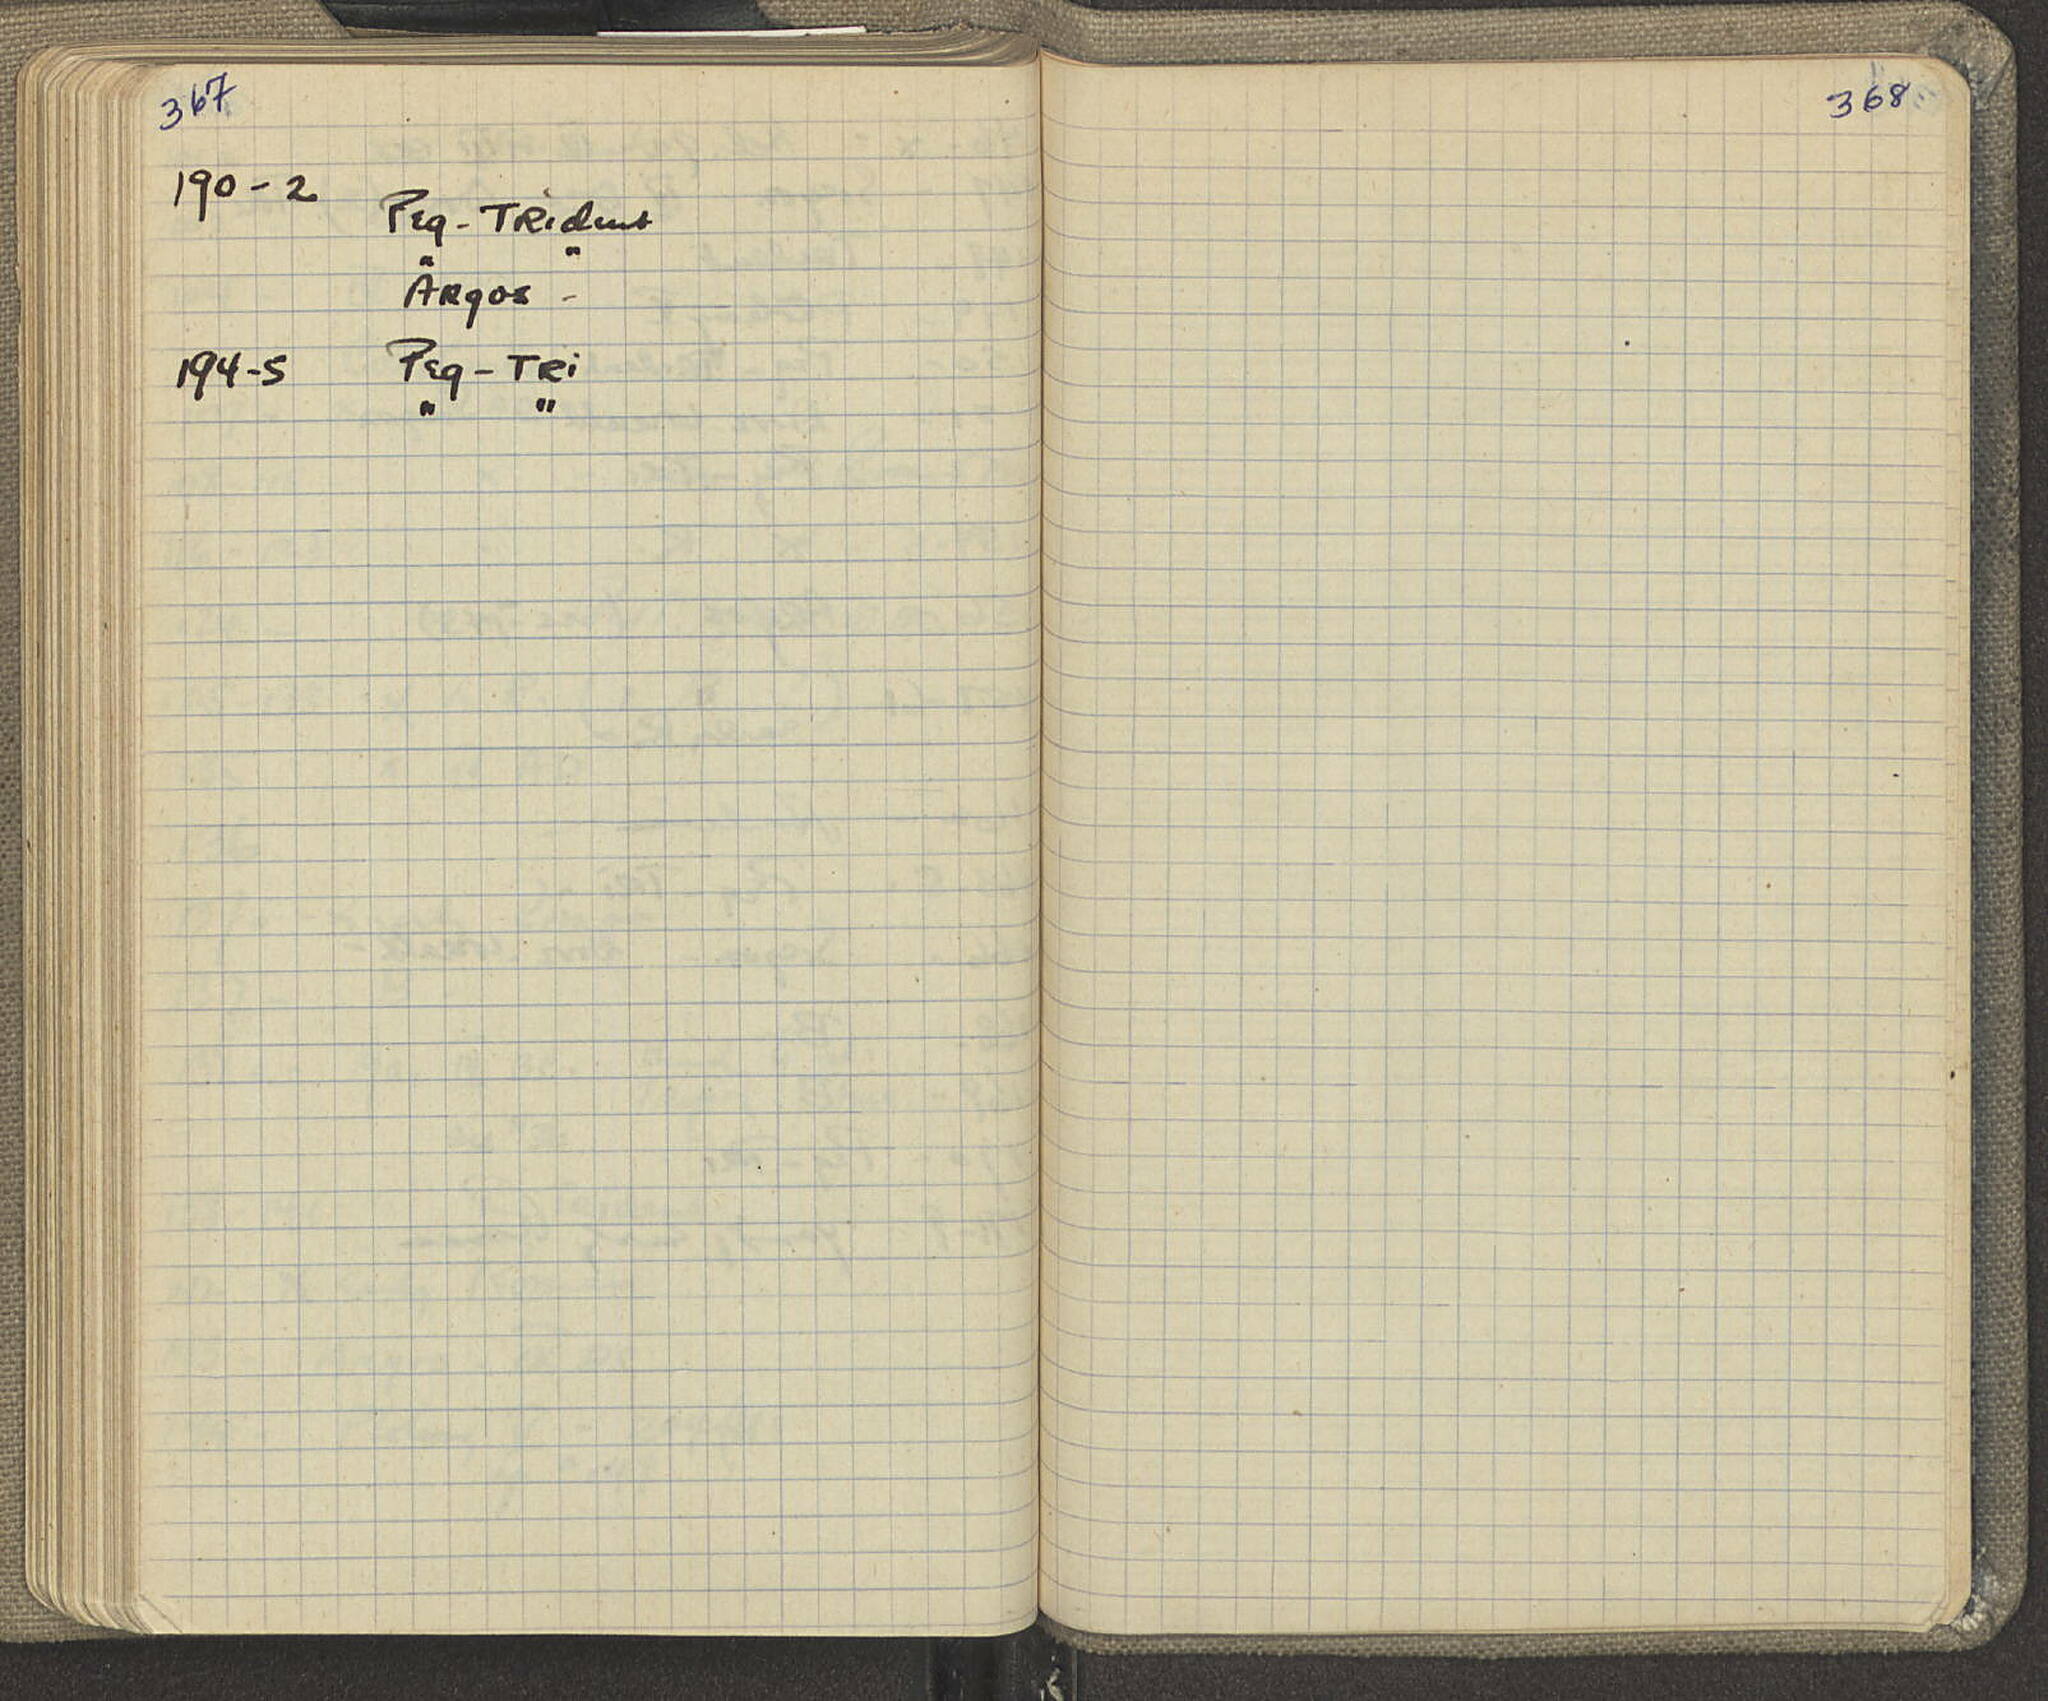 367
190-2
Peg-Trident
" "
Argos -
194-5 Peg-Tri
" "
368